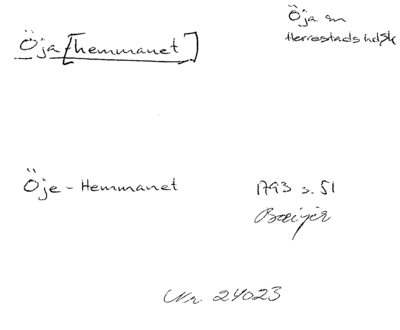 Öja [hemmanet]
Öja sn
Herrestads hd Sk
Öje-Hemmanet
1793 s. 51
Nr. 24023